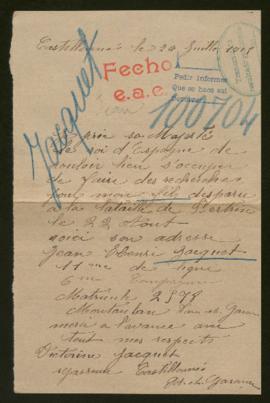 Castillonnès le 24 Juillet 1915
Fecho
e.a.c.
Pedir informes
Que se haga sut
100704
Jacquet
Je prie sa Majesté
le roi d'Espagne de
vouloir bien s'occuper
de faire des recherches
pour mon fils disparu
à la bataille de Bertrix
le 22 Aout
voici son adresse
Jean Jacquet
11me de ligne
6me Compagnie
Matricule 2978
Montauban Tarn et Garonne
merci a l'avance avec
tout mes respects
Victorine Jacquet
repasseuse Castillonnès
Lot et Garonne